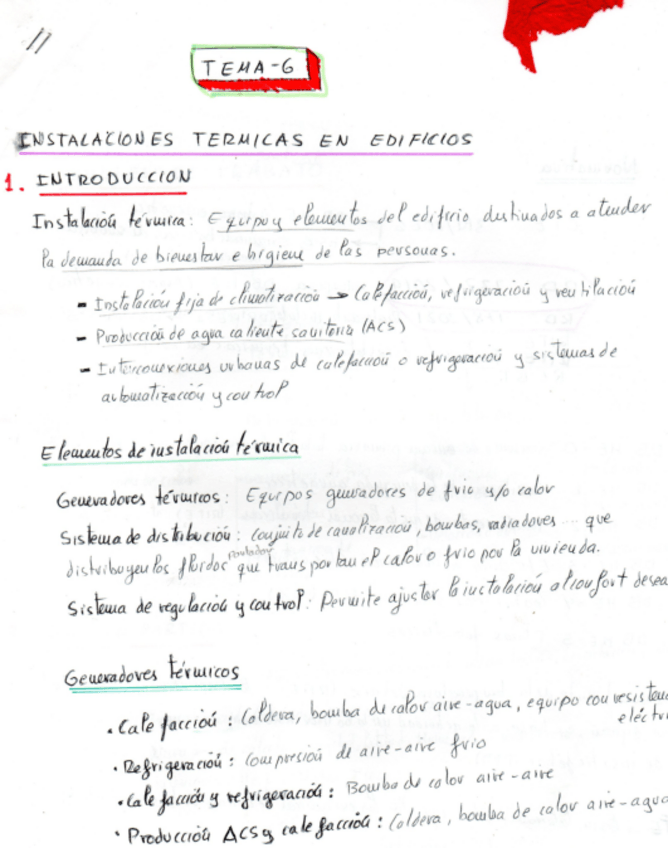 11
TEMA-6
INSTALACIONES TERMICAS EN EDIFICIOS
1. INTRODUCCION
Instalación térmica: Equipos y elementos del edificio destinados a atender
la demanda de bienestar e higiene de las personas.
- Instalación fija de climatización → Calefacción, refrigeración y ventilación
- Producción de agua caliente sanitaria (ACS)
- Interconexiones urbanas de calefacción o refrigeración y sistemas de
automatización y control
Elementos de instalación térmica
Generadores térmicos: Equipos generadores de frio y/o calor
Sistema de distribución: conjunto de canalización, bombas, radiadores ... que
distribuyen los fluidos portador que transportan el calor o frio por la vivienda.
Sistema de regulación y control: Permite ajustar la instalación al confort desea
Generadores térmicos
· Calefacción: Caldera, bomba de calor aire-agua, equipo con resisten
eléctri
· Refrigeración: Compresión de aire-aire frio
· Calefacción y refrigeración: Bomba de calor aire-aire
· Producción ACS y calefacción: Caldera, bomba de calor aire-agua